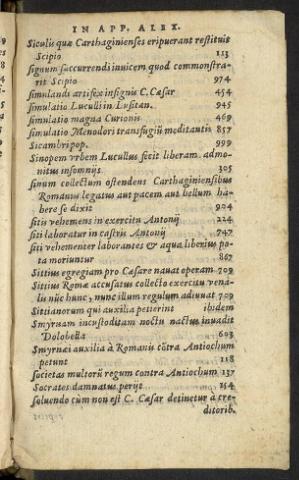 IN APP. ALEX.
Siculis quæ Carthaginienses eripuerant restituit
Scipio 113
signum succurrendi inuicem quod commonstra-
rit Scipio 974
simulandi artifex insignis C. Cæsar 454
simulatio Luculli in Lusitan. 945
simulatio magna Curionis 469
simulatio Menodori transfugiũ meditantis 857
Sicambri pop. 999
Sinopem vrbem Lucullus fecit liberam admo-
nitus insomnijs 305
sinum collectum ostendens Carthaginiensibus
Romanus legatus aut pacem aut bellum ha-
bere se dixit 904
sitis vehemens in exercitu Antonij 224
siti laboratur in castris Antonij 747
siti vehementer laborantes & aqua liberius po-
ta moriuntur 867
Sittius egregiam pro Cæsare nauat operam 709
Sittius Romæ accusatus collecto exercitu vena-
lis nũc hunc, nunc illum regulum adiuuat 709
Sittianorum qui auxilia petierint ibidem
Smyrnam incustoditam noctu nactus inuadit
Dolobella 603
Smyrnæi auxilia à Romanis cõtra Antiochum
petunt 118
societas multorũ regum contra Antiochum 137
Socrates damnatus perijt 154
soluendo cùm non est C. Cæsar detinetur à cre-
ditorib.